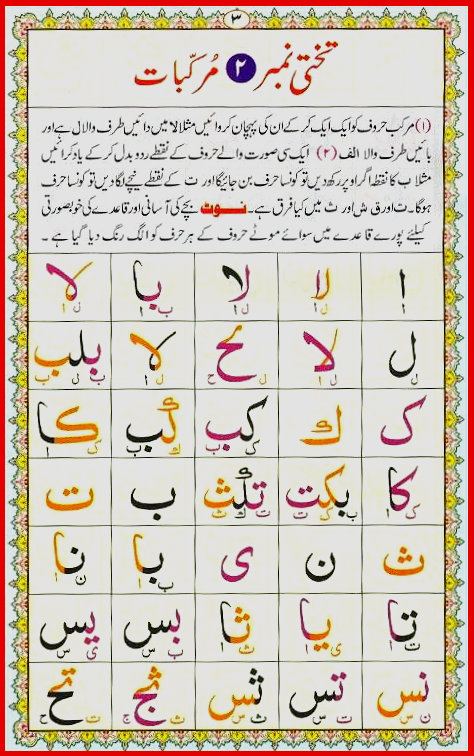 ۳
تختی نمبر ۲ مُرکّبات
(۱) مرکب حروف کو ایک ایک کر کے ان کی پہچان کروائیں مثلا لا میں دائیں طرف والا ل ہے اور
بائیں طرف والا الف (۲) ایک سی صورت والے حروف کے نقطے ردوبدل کر کے یاد کرائیں
مثلا ب کا نقطہ اگر اوپر رکھ دیں تو کونسا حرف بن جائیگا اور ت کے نقطے نیچے لگا دیں تو کونسا حرف
ہوگا۔ ت اور ق ش اور ث میں کیا فرق ہے۔ نوٹ بچے کی آسانی اور قاعدے کی خوبصورتی
کیلئے پورے قاعدے میں سوائے موٹے حروف کے ہر حرف کو الگ رنگ دیا گیا ہے۔
ا لا لا با لا
ل ا ل ا ب ا ل ا
ل لا لح لا بلب
ل ا ل ح ل ا ب ل ب
ک ك کب كب کا
ک ب ك ب ک ا
کا بکت تكث ب ت
ک ا ب ک ت ت ك ث
ث ن ی با نا
ب ا ن ا
تا یا ثا بس یس
ت ا ی ا ث ا ب س ی س
نس تس ثس ثج تح
ن س ت س ث س ث ج ت ح